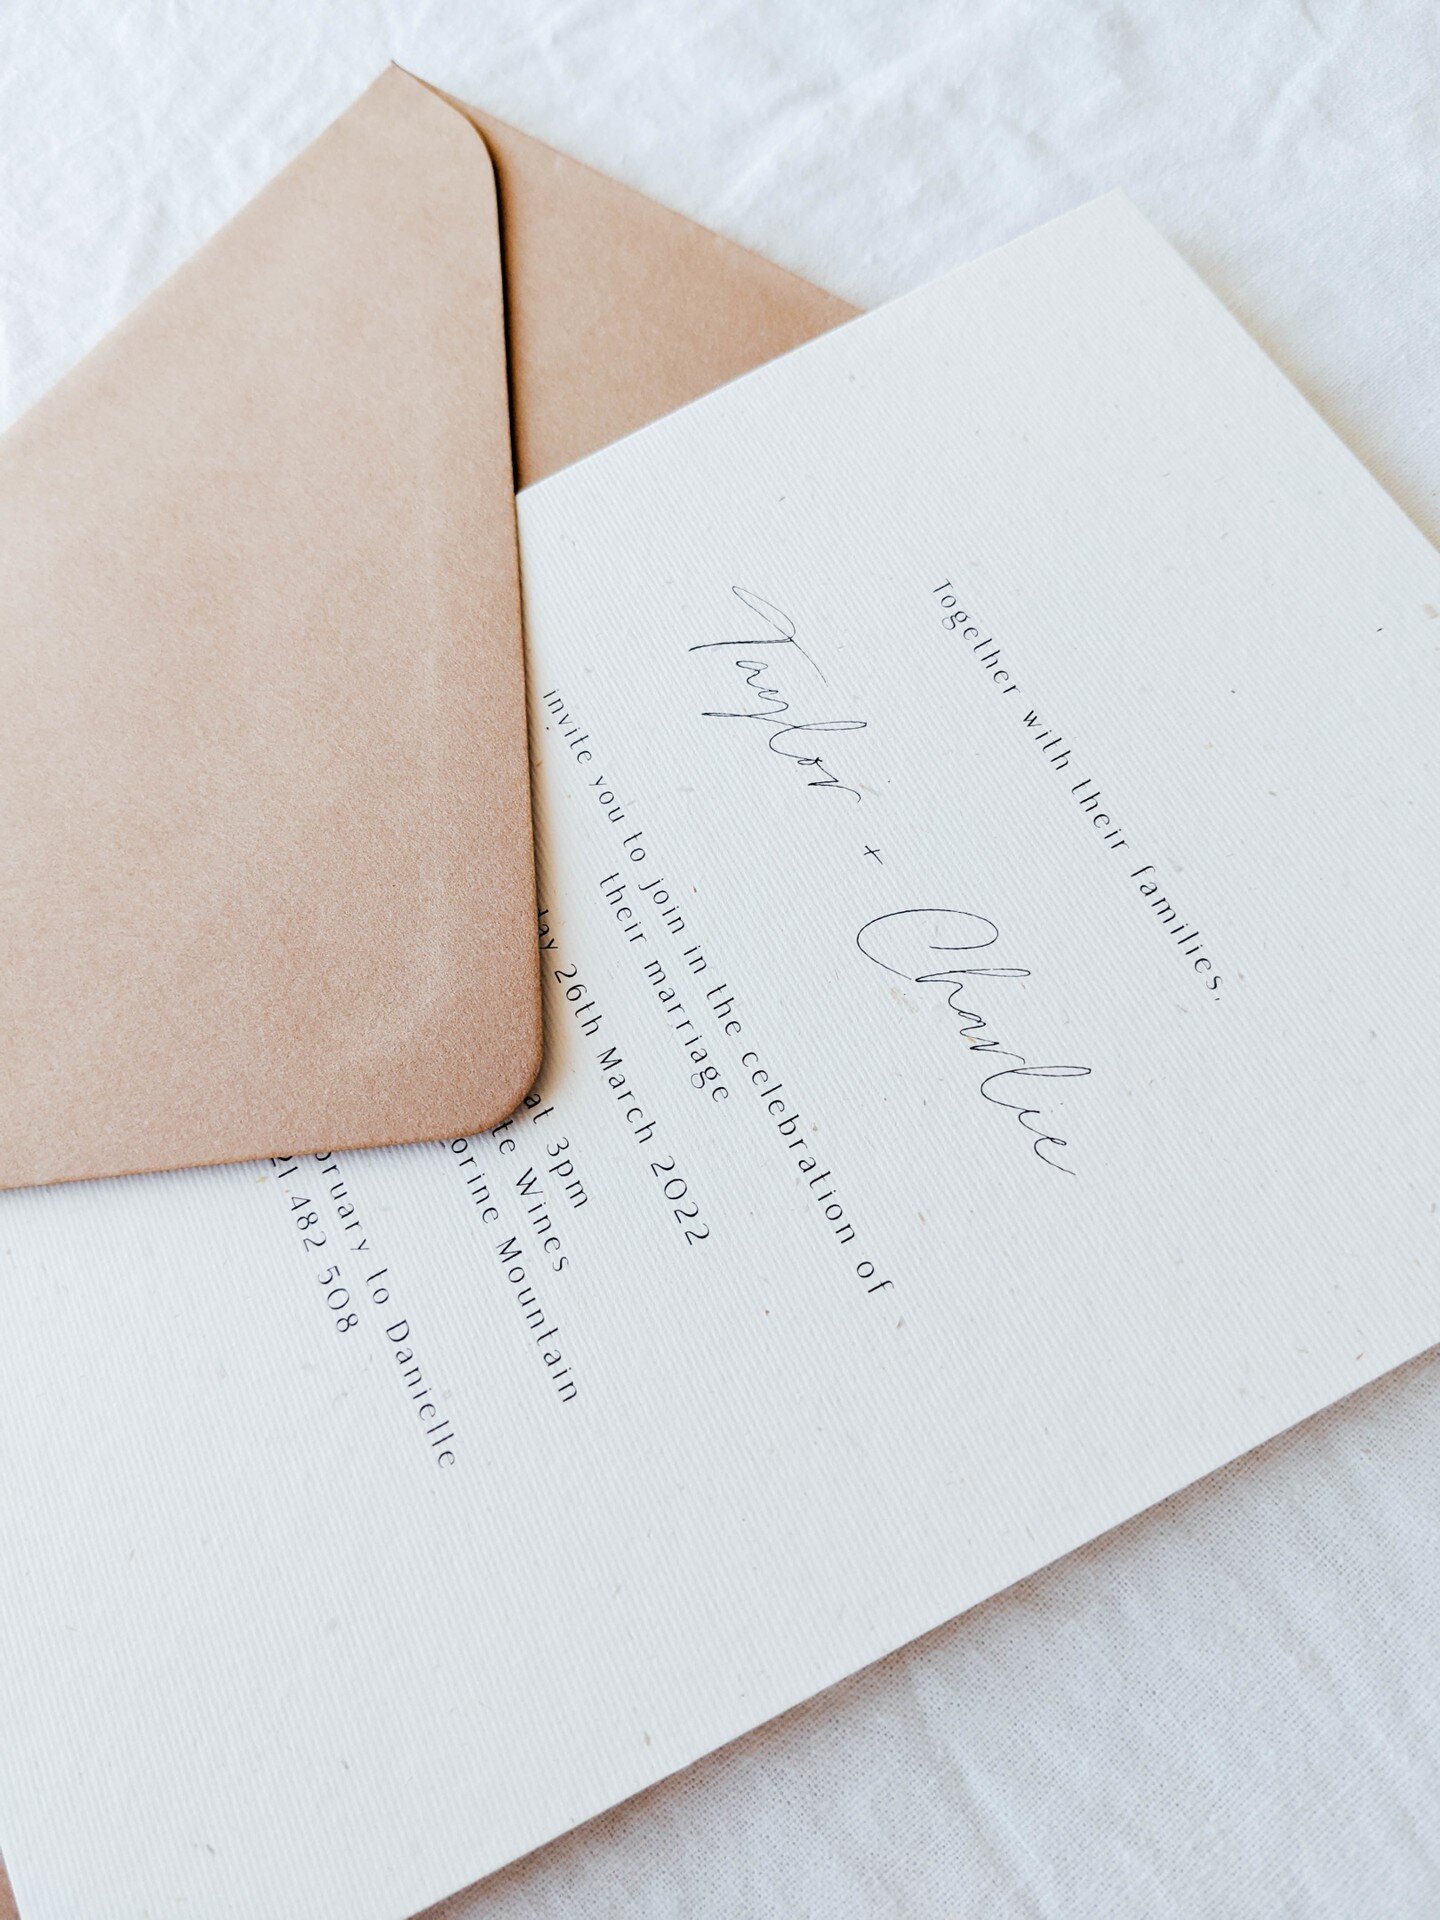 Together with their families,
Taylor + Charlie
invite you to join in the celebration of
their marriage
26th March 2022
at 3pm
Wines
Mountain
to Danielle
482 508